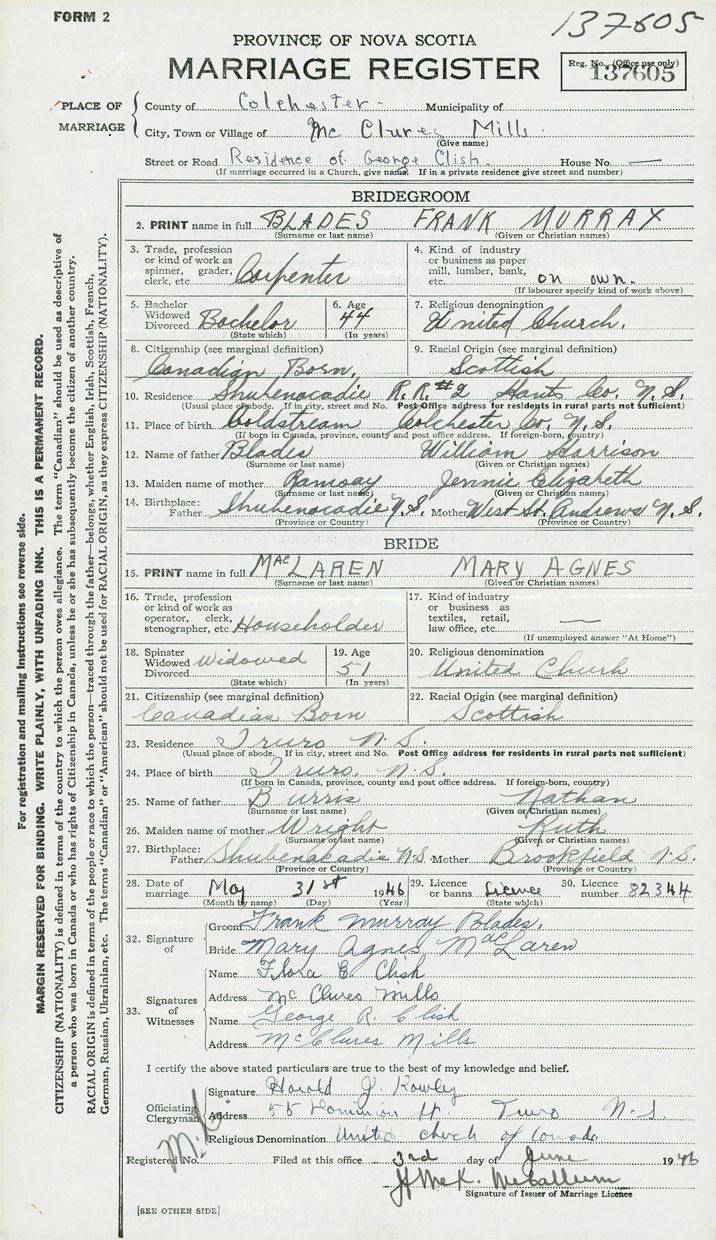 FORM 2
137605
PROVINCE OF NOVA SCOTIA
MARRIAGE REGISTER
Reg. No. (Office use only)
137605
PLACE OF MARRIAGE
County of Colchester Municipality of
City, Town or Village of Mc Clures Mills
(Give name)
Street or Road Residence of George Clish. House No. —
(If marriage occurred in a Church, give name. If in a private residence give street and number)
BRIDEGROOM
2. PRINT name in full BLADES FRANK MURRAY
(Surname or last name) (Given or Christian names)
3. Trade, profession or kind of work as spinner, grader, clerk, etc. Carpenter
4. Kind of industry or business as paper mill, lumber, bank, etc. on own.
(If labourer specify kind of work above)
5. Bachelor Widowed Divorced Bachelor
(State which)
6. Age 44
(In years)
7. Religious denomination
United Church.
8. Citizenship (see marginal definition)
Canadian Born,
9. Racial Origin (see marginal definition)
Scottish
10. Residence Shubenacadie R.R.#2 Hants Co. N.S.
(Usual place of abode. If in city, street and No. Post Office address for residents in rural parts not sufficient)
11. Place of birth Coldstream Colchester Co. N.S.
(If born in Canada, province, county and post office address. If foreign-born, country)
12. Name of father Blades William Harrison
(Surname or last name) (Given or Christian names)
13. Maiden name of mother Ramsay Jennie Elizabeth
(Surname or last name) (Given or Christian names)
14. Birthplace: Father Shubenacadie N.S. Mother West St. Andrews N.S.
(Province or Country) (Province or Country)
BRIDE
15. PRINT name in full MacLAREN MARY AGNES
(Surname or last name) (Given or Christian names)
16. Trade, profession or kind of work as operator, clerk, stenographer, etc. Householder
17. Kind of industry or business as textiles, retail, law office, etc. —
(If unemployed answer "At Home")
18. Spinster Widowed Divorced Widowed
(State which)
19. Age 51
(In years)
20. Religious denomination
United Church
21. Citizenship (see marginal definition)
Canadian Born
22. Racial Origin (see marginal definition)
Scottish
23. Residence Truro N.S.
(Usual place of abode. If in city, street and No. Post Office address for residents in rural parts not sufficient)
24. Place of birth Truro, N.S.
(If born in Canada, province, county and post office address. If foreign-born, country)
25. Name of father Burris Nathan
(Surname or last name) (Given or Christian names)
26. Maiden name of mother Wright Ruth
(Surname or last name) (Given or Christian names)
27. Birthplace: Father Shubenakadie N.S. Mother Brookfield N.S.
(Province or Country) (Province or Country)
28. Date of marriage May 31st 1946 29. Licence or banns Licence 30. Licence number 82344
(Month by name) (Day) (Year) (State which)
32. Signature of
Groom Frank Murray Blades.
Bride Mary Agnes MacLaren
33. Signatures of Witnesses
Name Flora E. Clish
Address Mc Clures Mills
Name George R. Clish
Address McClures Mills
I certify the above stated particulars are true to the best of my knowledge and belief.
Officiating Clergyman
Signature Harold J. Rowley
Address 55 Dominion St. Truro N.S.
Religious Denomination United Church of Canada
Registered No. Filed at this office 3rd day of June 1946
Signature of Issuer of Marriage Licence
[SEE OTHER SIDE]
For registration and mailing instructions see reverse side.
MARGIN RESERVED FOR BINDING. WRITE PLAINLY, WITH UNFADING INK. THIS IS A PERMANENT RECORD.
CITIZENSHIP (NATIONALITY) is defined in terms of the country to which the person owes allegiance. The term "Canadian" should be used as descriptive of
a person who was born in Canada or who has rights of Citizenship in Canada, unless he or she has subsequently become the citizen of another country.
RACIAL ORIGIN is defined in terms of the people or race to which the person—traced through the father—belongs, whether English, Irish, Scottish, French,
German, Russian, Ukrainian, etc. The terms "Canadian" or "American" should not be used for RACIAL ORIGIN, as they express CITIZENSHIP (NATIONALITY).